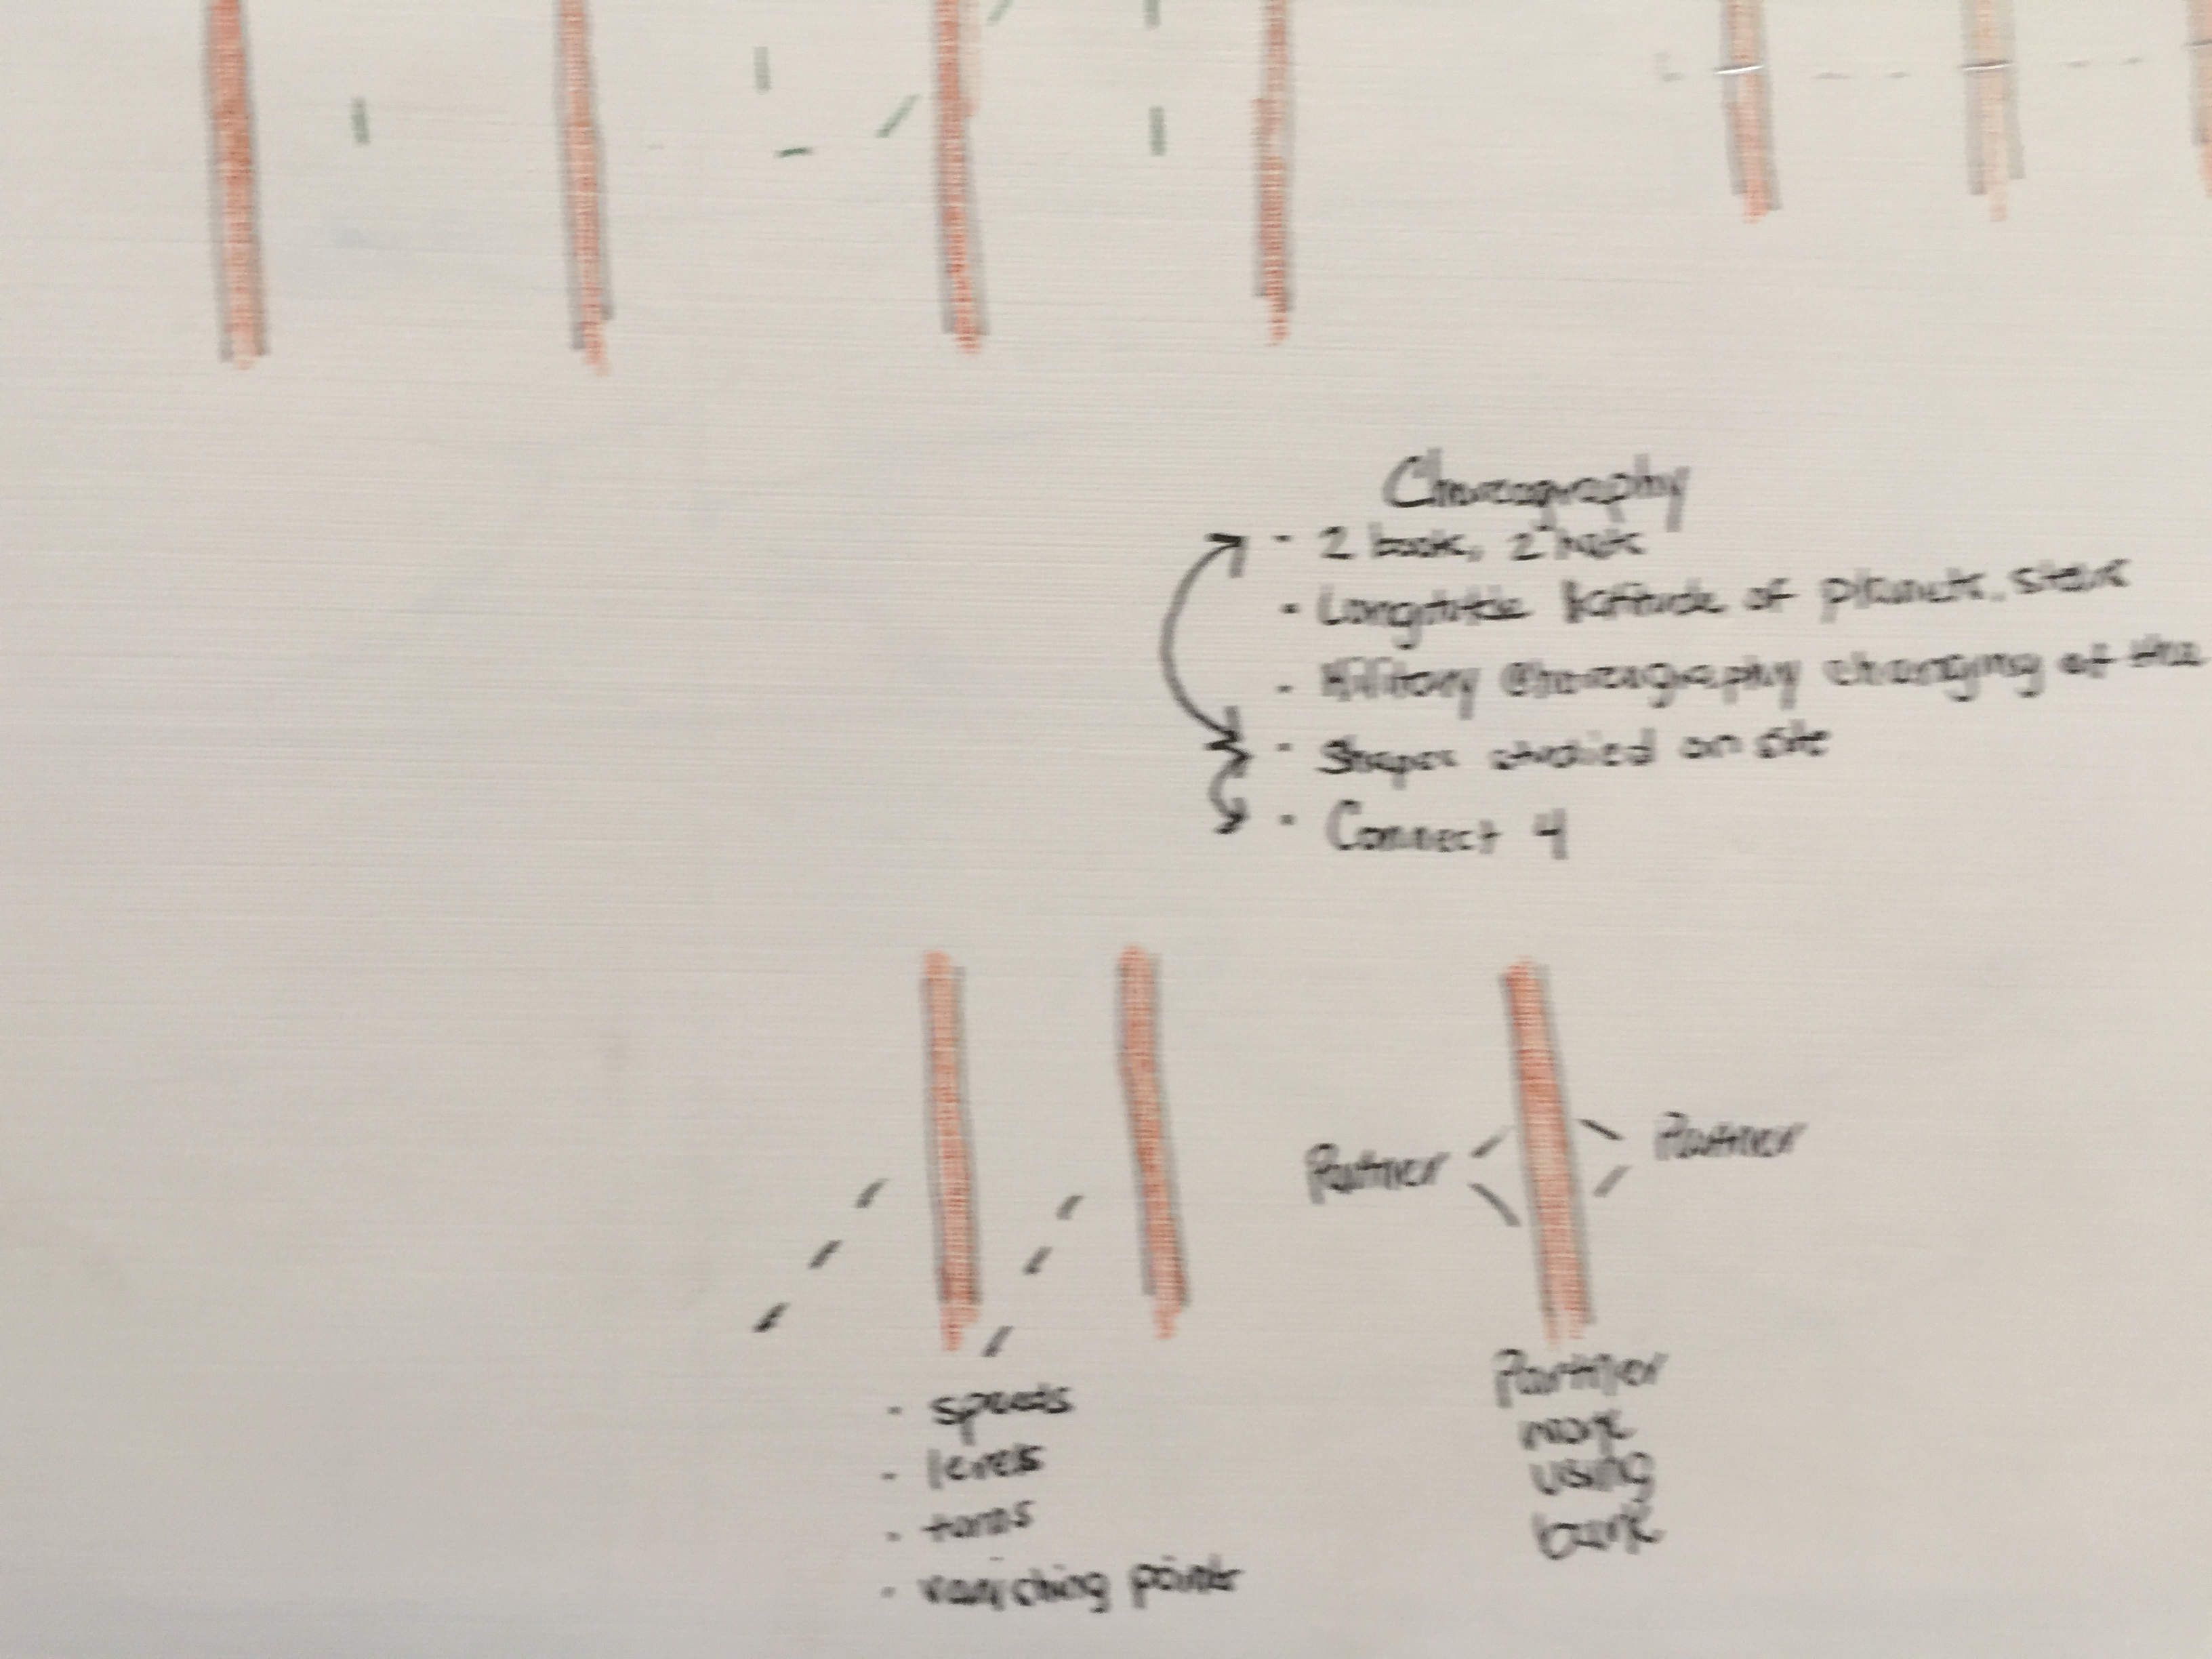 Choreography
- 2 book, 2
- Longitude latitude of planets, stars
- Military Choreography changing of the
- Shapes studied on site
- Connect 4
Partner
Partner
- speeds
- levels
- turns
- vanishing points
Partner
work
using
bark